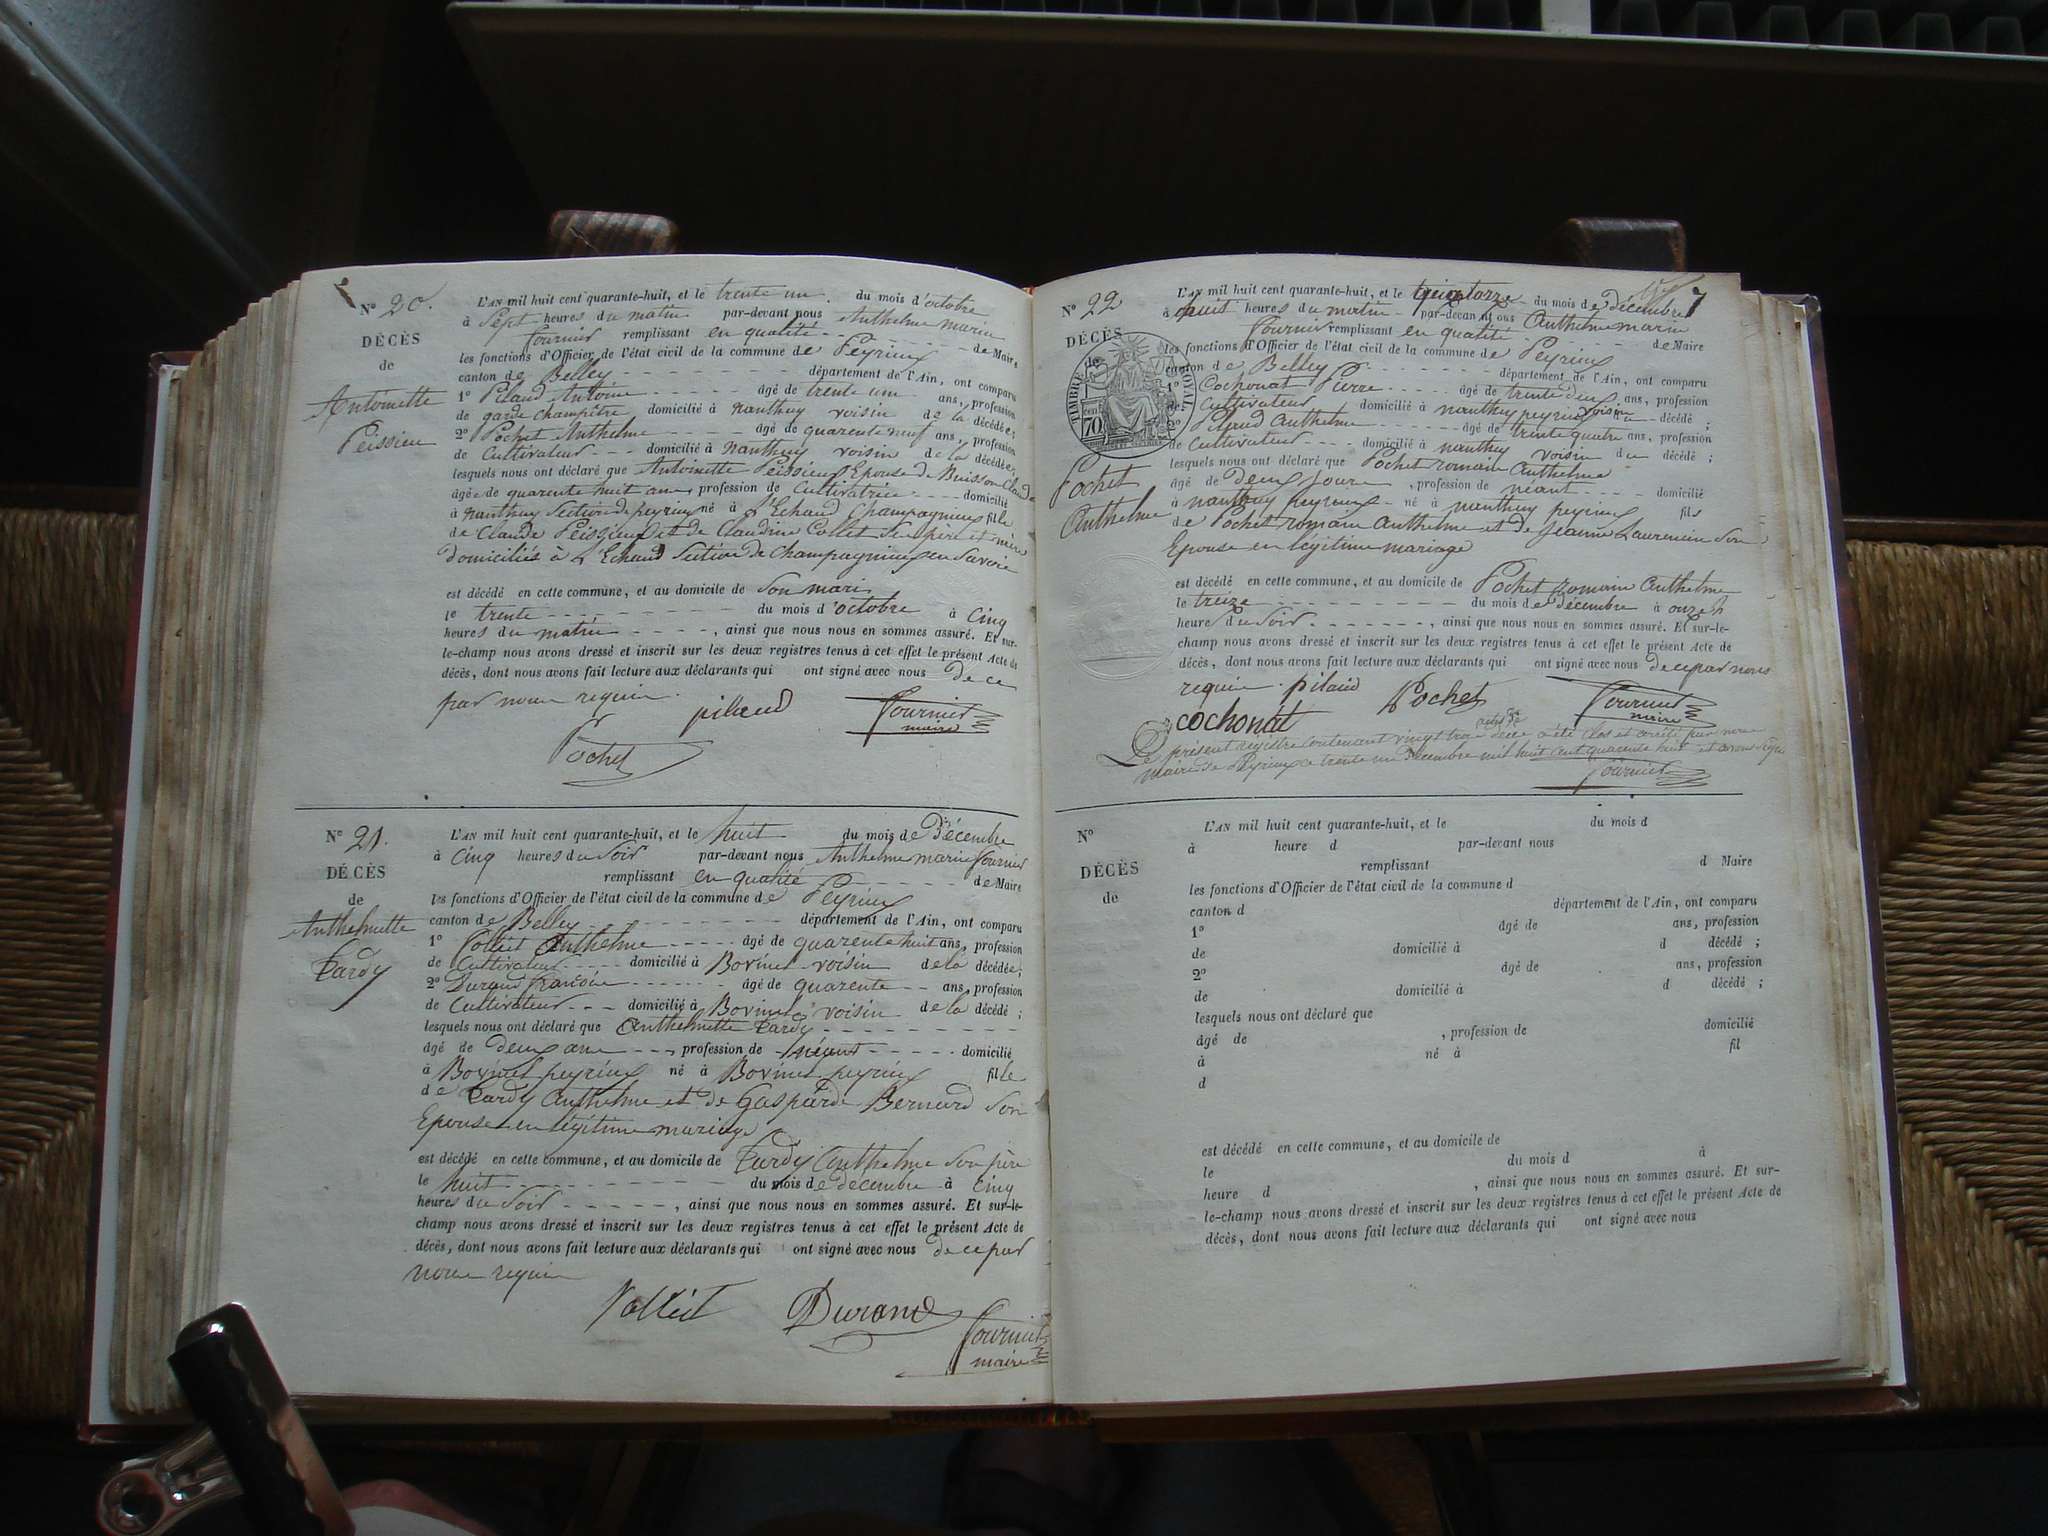 N° 20.
DÉCÈS
de
Antoinette
Peissieu
L'AN mil huit cent quarante-huit, et le trente un du mois d'octobre
à Sept heures du matin par-devant nous Anthelme marin
Fournier remplissant en qualité de Maire
les fonctions d'Officier de l'état civil de la commune de Peyrieu
canton de Belley département de l'Ain, ont comparu
1° Pilaud Antoine âgé de trente un ans, profession
de garde champêtre domicilié à nanthuy voisin de la décédée;
2° Pochet Anthelme âgé de quarente neuf ans, profession
de Cultivateur domicilié à nanthuy voisin de la décédée;
lesquels nous ont déclaré que Antoinette Peissieu Epouse de Buisson Claude
âgée de quarente huit ans, profession de Cultivatrice domicilié
à nanthuy Section de peyrieu né à L'Echaud Champagnieux fille
de Claude Peissieu et de Claudine Collet Ses père et mère
domiciliés à L'Echaud Section de Champagnieux en Savoie
est décédé en cette commune, et au domicile de Son mari
le trente du mois d'octobre à Cinq
heures du matin, ainsi que nous nous en sommes assuré. Et sur-
le-champ nous avons dressé et inscrit sur les deux registres tenus à cet effet le présent Acte de
décès, dont nous avons fait lecture aux déclarants qui ont signé avec nous de ce
par nous requis.
pilaud Fournier
maire
Pochet
N° 21.
DÉCÈS
de
Anthelmette
Tardy
L'AN mil huit cent quarante-huit, et le huit du mois de Décembre
à Cinq heures du Soir par-devant nous Anthelme marin Fournier
remplissant en qualité de Maire
les fonctions d'Officier de l'état civil de la commune de Peyrieu
canton de Belley département de l'Ain, ont comparu
1° Anthelme âgé de quarente huit ans, profession
de Cultivateur domicilié à Bovinel voisin de la décédée;
2° Durand francois âgé de quarente ans, profession
de Cultivateur domicilié à Bovinel voisin de la décédé;
lesquels nous ont déclaré que Anthelmette Tardy
âgé de deux ans, profession de néant domicilié
à Bovinel peyrieu né à Bovinel peyrieu fille
de Tardy Anthelme et de Gasparde Bernard Son
Epouse en légitime mariage
est décédé en cette commune, et au domicile de Tardy Anthelme Son père
le huit du mois de decembre à Cinq
heures du Soir, ainsi que nous nous en sommes assuré. Et sur-le-
champ nous avons dressé et inscrit sur les deux registres tenus à cet effet le présent Acte de
décès, dont nous avons fait lecture aux déclarants qui ont signé avec nous de ce par
nous requis
Durand
Fournier
maire
7
N° 22
DÉCÈS
de
TIMBRE ROYAL
70
Pochet
Anthelme
L'AN mil huit cent quarante-huit, et le quatorze du mois de Décembre
à huit heures du matin par-devant nous Anthelme marin
Fournier remplissant en qualité de Maire
les fonctions d'Officier de l'état civil de la commune de Peyrieu
canton de Belley département de l'Ain, ont comparu
1° Cochonat Pierre âgé de trente deux ans, profession
de Cultivateur domicilié à nanthuy peyrieu voisin du décédé;
2° Pilaud Anthelme âgé de trente quatre ans, profession
de Cultivateur domicilié à nanthuy voisin du décédé;
lesquels nous ont déclaré que Pochet romain Anthelme
âgé de deux Jours, profession de néant domicilié
à nanthuy peyrieu né à nanthuy peyrieu fils
de Pochet romain Anthelme et de Jeanne Laurencin Son
Epouse en légitime mariage
est décédé en cette commune, et au domicile de Pochet romain Anthelme
le treize du mois de décembre à onze
heures du Soir, ainsi que nous nous en sommes assuré. Et sur-le-
champ nous avons dressé et inscrit sur les deux registres tenus à cet effet le présent Acte de
décès, dont nous avons fait lecture aux déclarants qui ont signé avec nous de ce par nous
requis. pilaud Pochet Fournier
maire
cochonat
Le présent registre Contenant vingt trois actes de a été Clos et arrêté par nous
maire de Peyrieu ce trente un Décembre mil huit cent quarante huit et avons Signé
Fournier
N°
DÉCÈS
de
L'AN mil huit cent quarante-huit, et le du mois d
à heure d par-devant nous
remplissant d Maire
les fonctions d'Officier de l'état civil de la commune d
canton d département de l'Ain, ont comparu
1° âgé de ans, profession
de domicilié à d décédé;
2° âgé de ans, profession
de domicilié à d décédé;
lesquels nous ont déclaré que
âgé de , profession de domicilié
à né à fil
d
est décédé en cette commune, et au domicile de
le du mois d à
heure d , ainsi que nous nous en sommes assuré. Et sur-
le-champ nous avons dressé et inscrit sur les deux registres tenus à cet effet le présent Acte de
décès, dont nous avons fait lecture aux déclarants qui ont signé avec nous